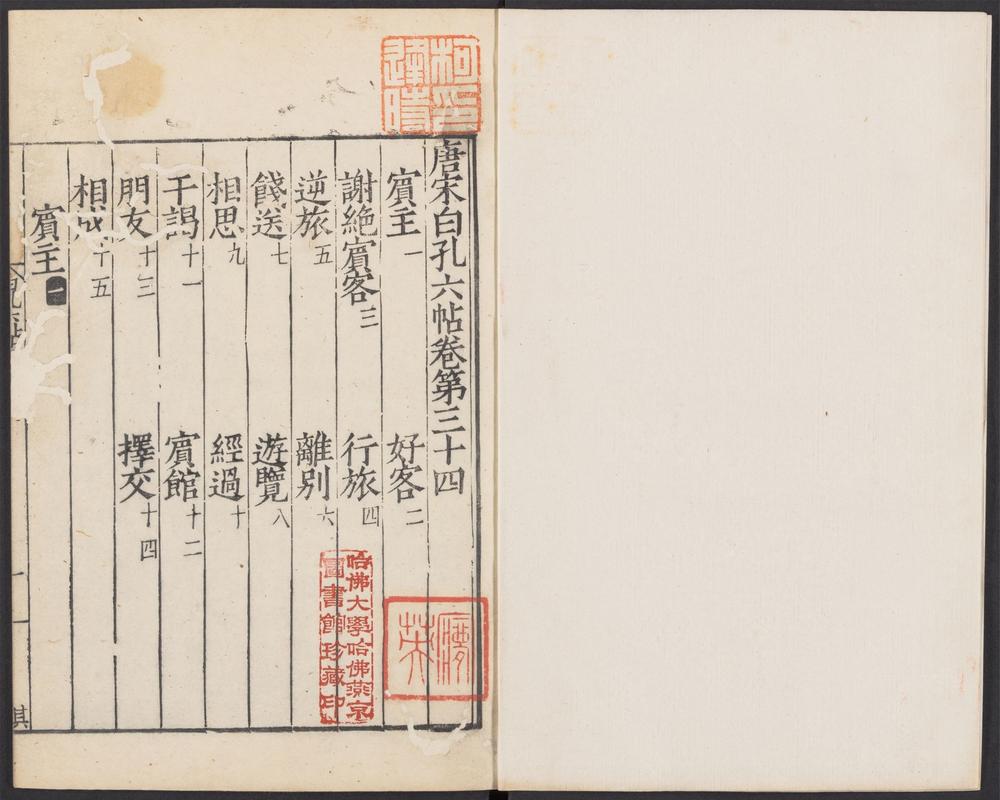 唐宋白孔六帖卷第三十四
賔主一 好客二
謝絶賔客三 行旅四
逆旅五 離别六
餞送七 遊覽八
相思九 經過十
干謁十一 賔館十二
朋友十三 擇交十四
相成十五
賔主一
哈佛大學哈佛燕京
圖書館珍藏印